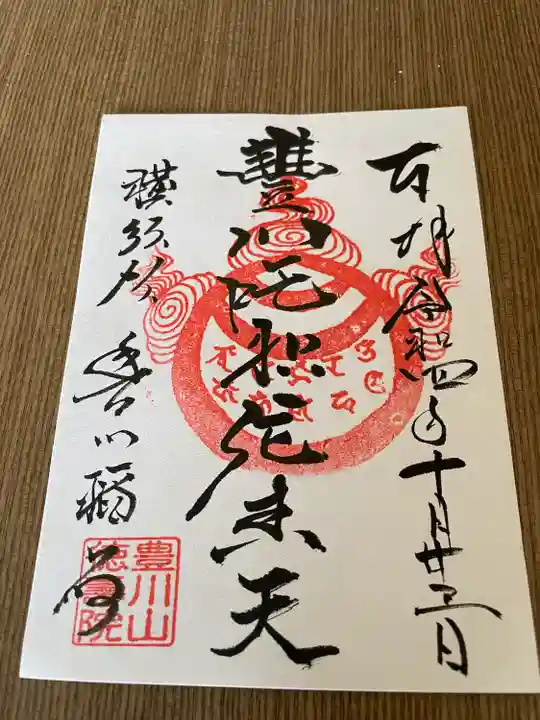 奉拝 令和四年十月廿三日
豐川陀枳尼眞天
横須賀 豊川稲荷
豊川山
徳寿院